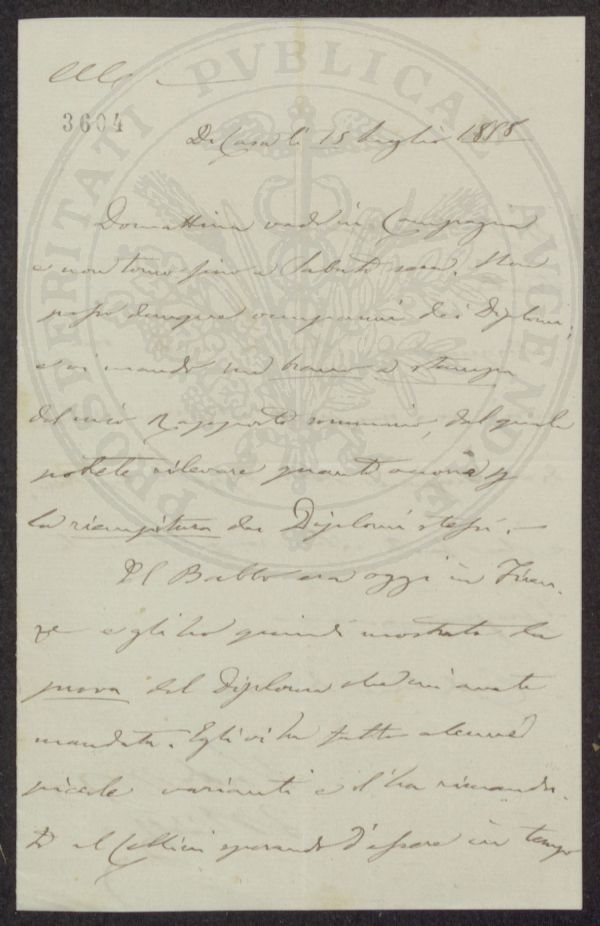 PROSPERITATI PVBLICAE AVGENDAE
3604
Di Casa li 15 luglio 1858
Domattina vado in Campagna
e non torno fino a Sabato sera. Non
posso dunque occuparmi dei Diplomi,
e vi mando un a stampa
del mio Rapporto sommario, dal quale
potete rilevare quanto occorra p
la riempitura dei Diplomi stessi. —
Il Babbo era oggi in Firen-
ze e gli ho quindi mostrata la
prova del Diploma che mi avete
mandata. Egli vi ha fatte alcune
piccole varianti e l'ha rimanda-
ta al Cellini sperando d'essere in tempo